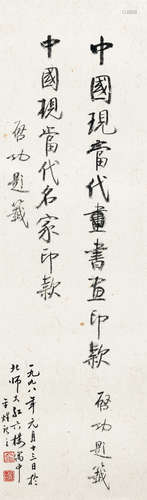 中國現當代畫書画印款
啓功題籤
中國現當代名家印款
啓功題籤
一九九八年元月十三日於
北師大紅六樓寓中